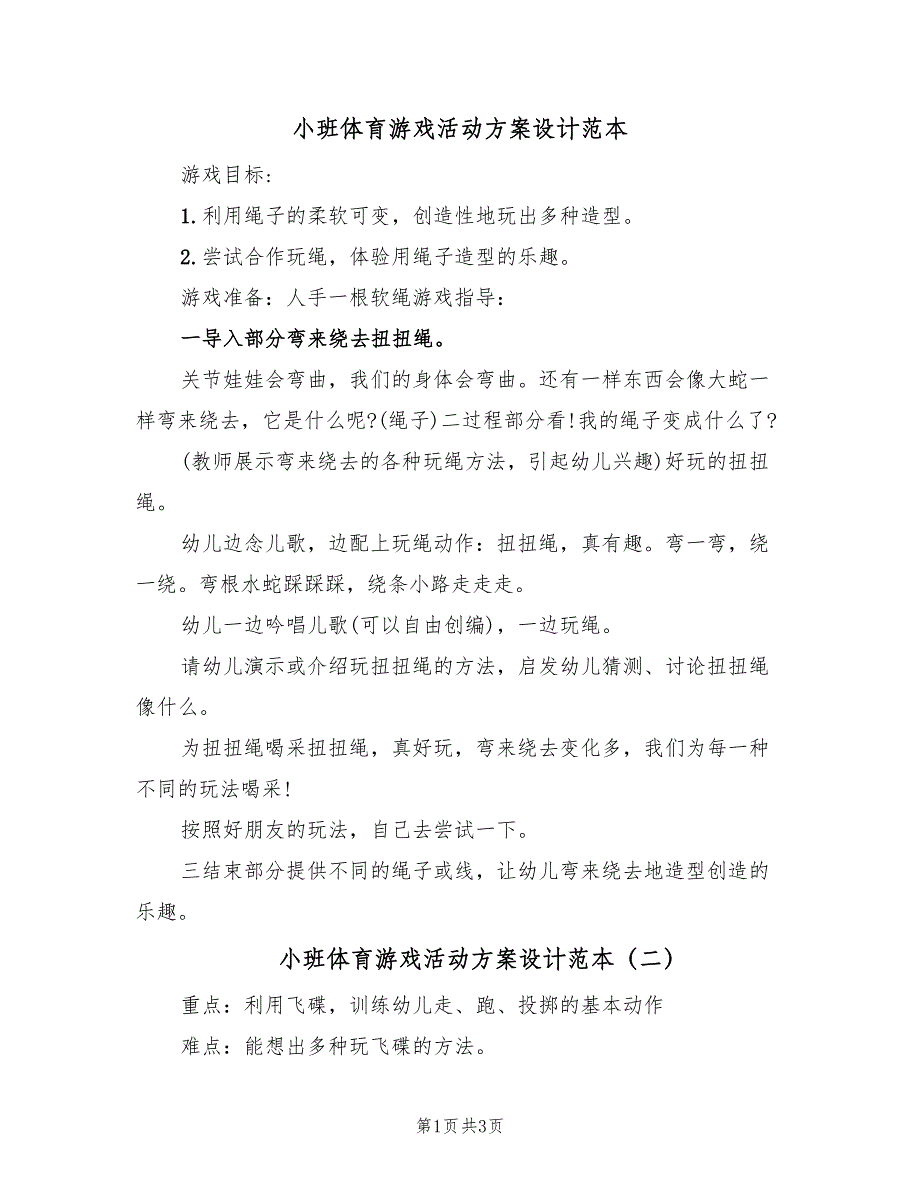 小班体育游戏活动方案设计范本
游戏目标:
1.利用绳子的柔软可变，创造性地玩出多种造型。
2.尝试合作玩绳，体验用绳子造型的乐趣。
游戏准备：人手一根软绳游戏指导：
一导入部分弯来绕去扭扭绳。
关节娃娃会弯曲，我们的身体会弯曲。还有一样东西会像大蛇一
样弯来绕去，它是什么呢?(绳子)二过程部分看!我的绳子变成什么了?
(教师展示弯来绕去的各种玩绳方法，引起幼儿兴趣)好玩的扭扭
绳。
幼儿边念儿歌，边配上玩绳动作：扭扭绳，真有趣。弯一弯，绕
一绕。弯根水蛇踩踩踩，绕条小路走走走。
幼儿一边吟唱儿歌(可以自由创编)，一边玩绳。
请幼儿演示或介绍玩扭扭绳的方法，启发幼儿猜测、讨论扭扭绳
像什么。
为扭扭绳喝采扭扭绳，真好玩，弯来绕去变化多，我们为每一种
不同的玩法喝采!
按照好朋友的玩法，自己去尝试一下。
三结束部分提供不同的绳子或线，让幼儿弯来绕去地造型创造的
乐趣。
小班体育游戏活动方案设计范本（二）
重点：利用飞碟，训练幼儿走、跑、投掷的基本动作
难点：能想出多种玩飞碟的方法。
第1页共3页